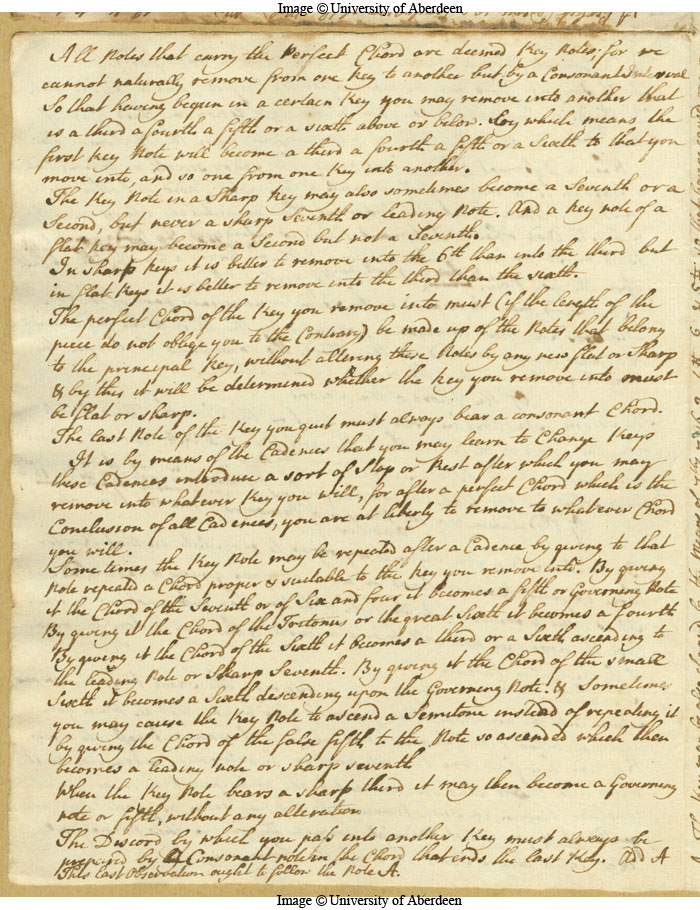 Image © University of Aberdeen
All Notes that carry the Perfect Chord are deemed Key Notes; for we
cannot naturally remove from one key to another but by a Consonant Interval
So that having begun in a certain Key you may remove into another that
is a third a fourth a fifth or a sixth above or below. By which means the
first Key Note will become a third a fourth a fifth or a Sixth to that you
move into, and so one from one Key into another.
The Key Note in a Sharp Key may also sometimes become a Seventh or a
Second, but never a sharp Seventh or leading Note. And a key note of a
flat key may become a Second but not a Seventh.
In sharp keys it is better to remove into the 6th than into the third but
in flat Keys it is better to remove into the third than the sixth.
The perfect Chord of the Key you remove into must (if the length of the
piece do not oblige you to the Contrary) be made up of the Notes that belong
to the principal Key, without altering these Notes by any new flat or Sharp
& by this it will be determined whether the key you remove into must
be flat or sharp.
The last Note of the Key you quit must always bear a consonant Chord.
It is by means of the Cadences that you may learn to Change Keys
these Cadences introduce a sort of Stop or Rest after which you may
remove into whatever Key you will, for after a perfect Chord which is the
Conclusion of all Cadences, you are at liberty to remove to whatever Chord
you will.
Sometimes the Key Note may be repeated after a Cadence by giving to that
Note repeated a Chord proper & suitable to the Key you remove into. By giving
it the Chord of the Seventh or of Six and four it becomes a fifth or Governing Note
By giving it the Chord of the Tritonus or the great Sixth it becomes a fourth
By giving it the Chord of the Sixth it becomes a third or a Sixth ascending to
the leading Note or Sharp Seventh. By giving it the Chord of the small
Sixth it becomes a Sixth descending upon the Governing Note. & Sometimes
you may cause the Key Note to ascend a Semitone instead of repeating it
by giving the Chord of the false fifth to the Note so ascended which then
becomes a leading note or sharp seventh
When the Key Note bears a sharp third it may then become a Governing
note or fifth, without any alteration
The Discord by which you pass into another Key must always be
prepared by a Consonant note in the Chord that ends the last Key. And A
This last Observation ought to follow the Note A.
Image © University of Aberdeen